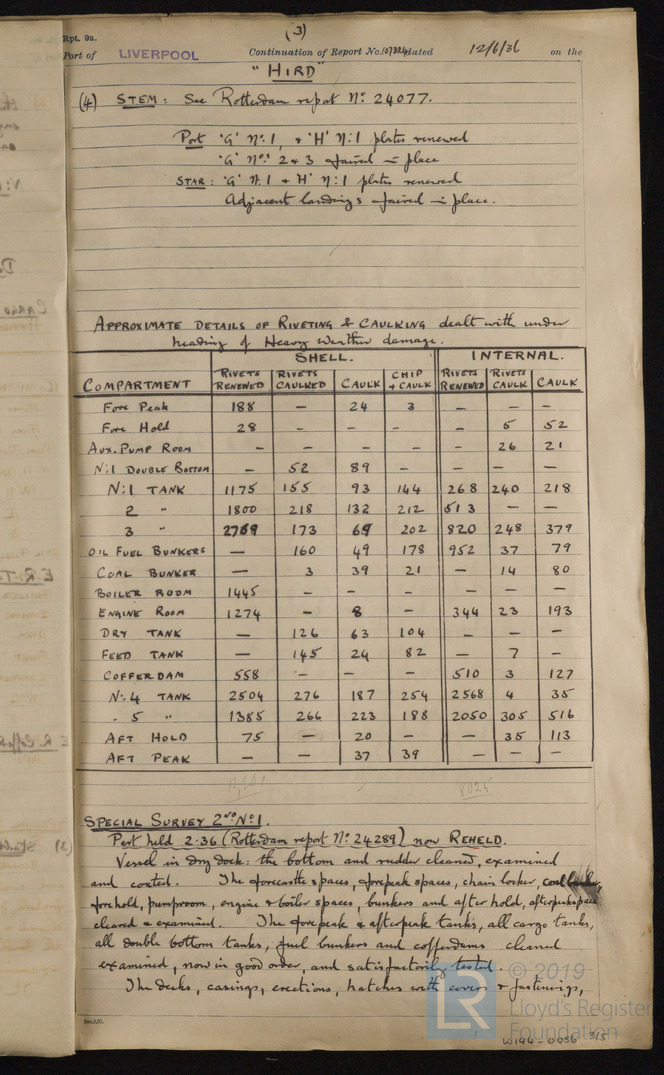 (3)
Rpt. 9a.
Port of LIVERPOOL Continuation of Report No. 107324 dated 12/6/36 on the
"HIRD"
(4) STEM: See Rotterdam report No: 24077.
Port 'G' No:1, & 'H' No:1 plates renewed
'G' Nos: 2 & 3 faired in place
STAR: 'G' No:1 & 'H' No:1 plates renewed
Adjacent landings faired in place.
APPROXIMATE DETAILS OF RIVETING & CAULKING dealt with under
heading of Heavy Weather damage.
SHELL. INTERNAL.
COMPARTMENT RIVETS RENEWED RIVETS CAULKED CAULK CHIP & CAULK RIVETS RENEWED RIVETS CAULK CAULK
Fore Peak 188 — 24 3 — — —
Fore Hold 28 - - - — 5 52
AUX. PUMP ROOM — — — — — 26 21
No:1 DOUBLE BOTTOM — 52 89 — — — —
No:1 TANK 1175 155 93 144 268 240 218
2 " 1800 218 132 212 513 — —
3 " 2769 173 69 202 820 248 379
OIL FUEL BUNKERS — 160 49 178 952 37 79
COAL BUNKER — 3 39 21 — 14 80
BOILER ROOM 1445 — — — — — —
ENGINE ROOM 1274 — 8 — 344 23 193
DRY TANK — 126 63 104 — — —
FEED TANK — 145 24 82 — 7 —
COFFERDAM 558 — — — 510 3 127
No:4 TANK 2504 276 187 254 2568 4 35
" 5 " 1385 266 223 188 2050 305 516
AFT HOLD 75 — 20 — — 35 113
AFT PEAK — — 37 39 — — —
8025
SPECIAL SURVEY 2nd No1.
Part held 2.36 (Rotterdam report No: 24289) now REHELD.
Vessel in dry dock: the bottom and rudder cleaned, examined
and coated. The forecastle spaces, forepeak spaces, chain locker,
forehold, pumproom, engine & boiler spaces, bunkers and after hold, afterpeak space
cleared & examined. The forepeak & afterpeak tanks, all cargo tanks,
all double bottom tanks, fuel bunkers and cofferdams cleaned
examined, now in good order, and satisfactorily tested.
The decks, casings, erections, hatches with covers & fastenings,
© 2019
LR Lloyd's Register
Foundation
W194-0056 3/5